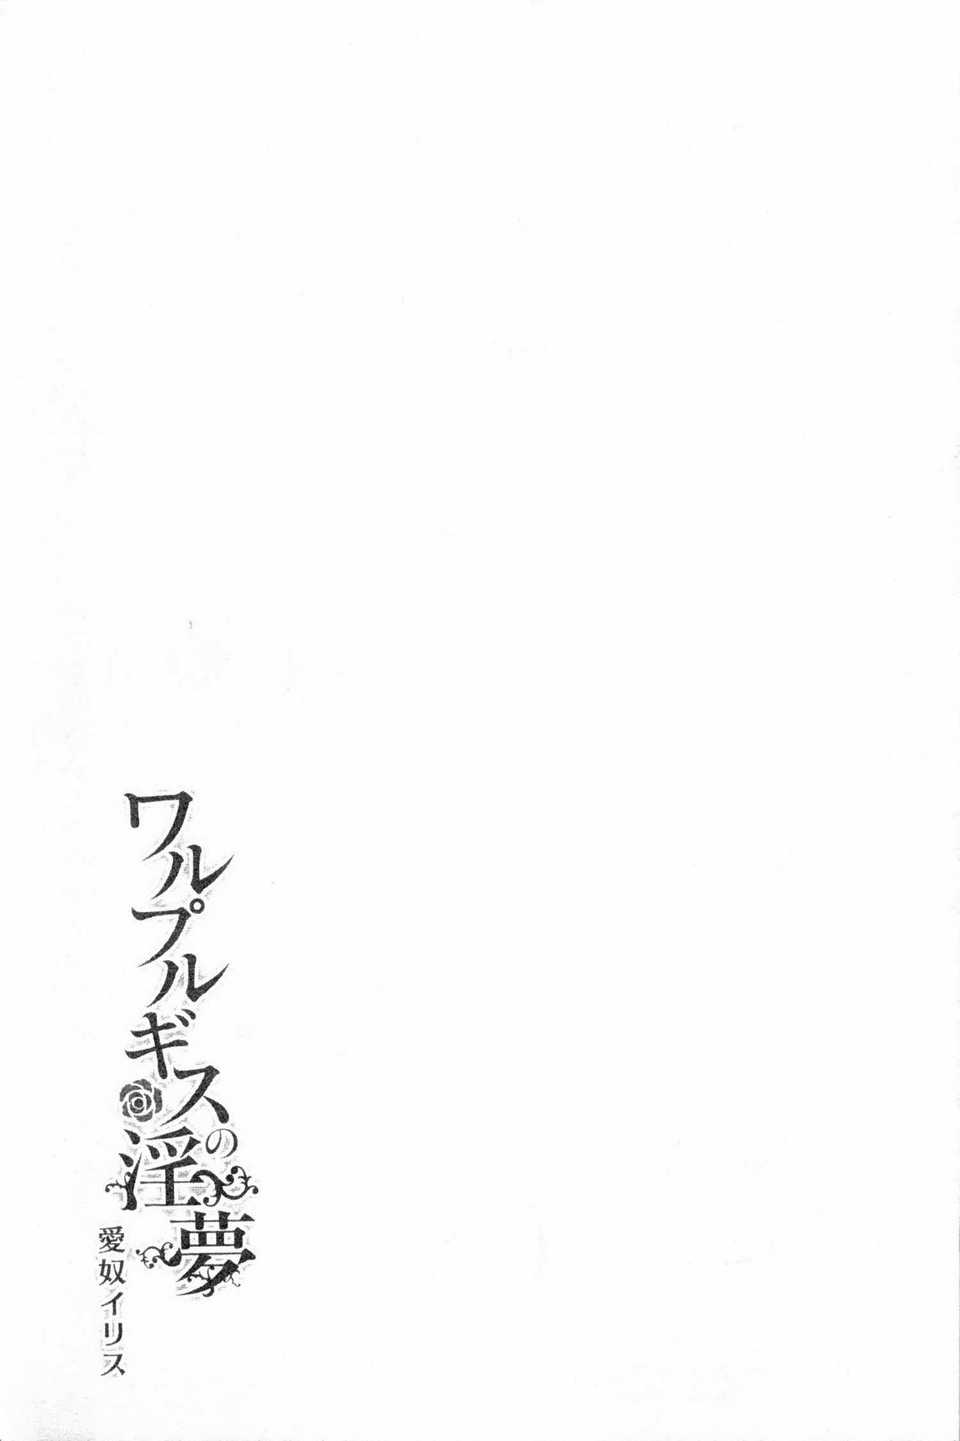 ワルプルギスの淫夢
愛奴イリス